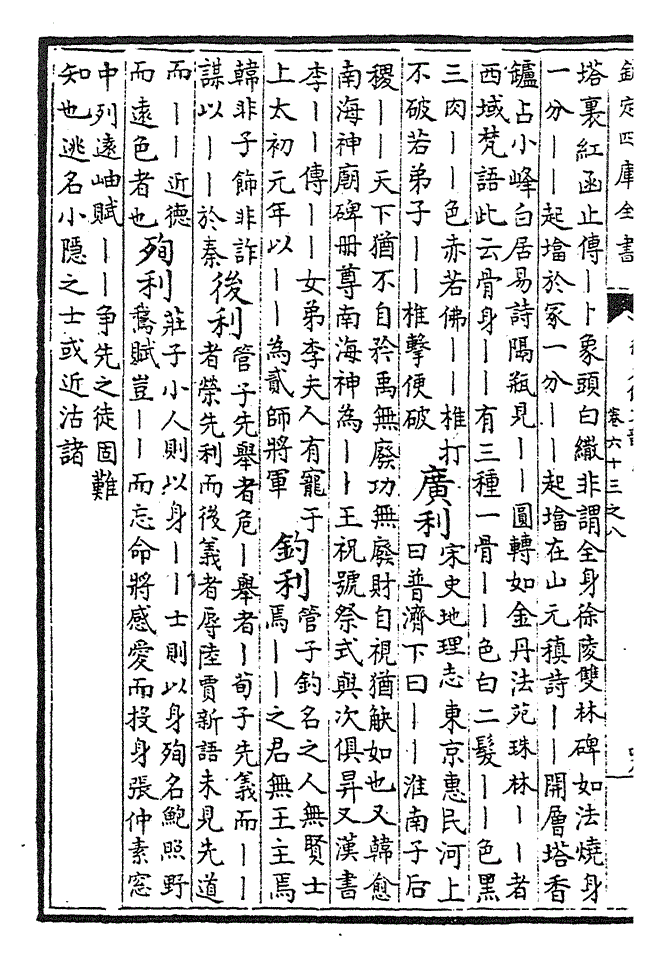 欽定四庫全書
卷六十三之八
塔裏紅函止傳丨丨象頭白繖非謂全身徐陵雙林碑如法燒身
一分丨丨起墖於冢一分丨丨起墖在山元稹詩丨丨開層塔香
鑪占小峰白居易詩隔瓶見丨丨圓轉如金丹法苑珠林丨丨者
西域梵語此云骨身丨丨有三種一骨丨丨色白二髮丨丨色黑
三肉丨丨色赤若佛丨丨椎打
不破若弟子丨丨椎擊便破
廣利
宋史地理志東京惠民河上
曰普濟下曰丨丨淮南子后
稷丨丨天下猶不自矜禹無廢功無廢財自視猶觖如也又韓愈
南海神廟碑冊尊南海神為丨丨王祝號祭式與次俱昇又漢書
李丨丨傳丨丨女弟李夫人有寵于
上太初元年以丨丨為貳師將軍
釣利
管子釣名之人無賢士
焉丨丨之君無王主焉
韓非子飾非詐
謀以丨丨於秦
後利
管子先舉者危丨舉者丨荀子先義而丨丨
者榮先利而後義者辱陸賈新語未見先道
而丨丨近德
而遠色者也
殉利
莊子小人則以身丨丨士則以身殉名鮑照野
鵞賦豈丨丨而忘命將感愛而投身張仲素窓
中列遠岫賦丨丨争先之徒固難
知也逃名小隱之士或近沽諸